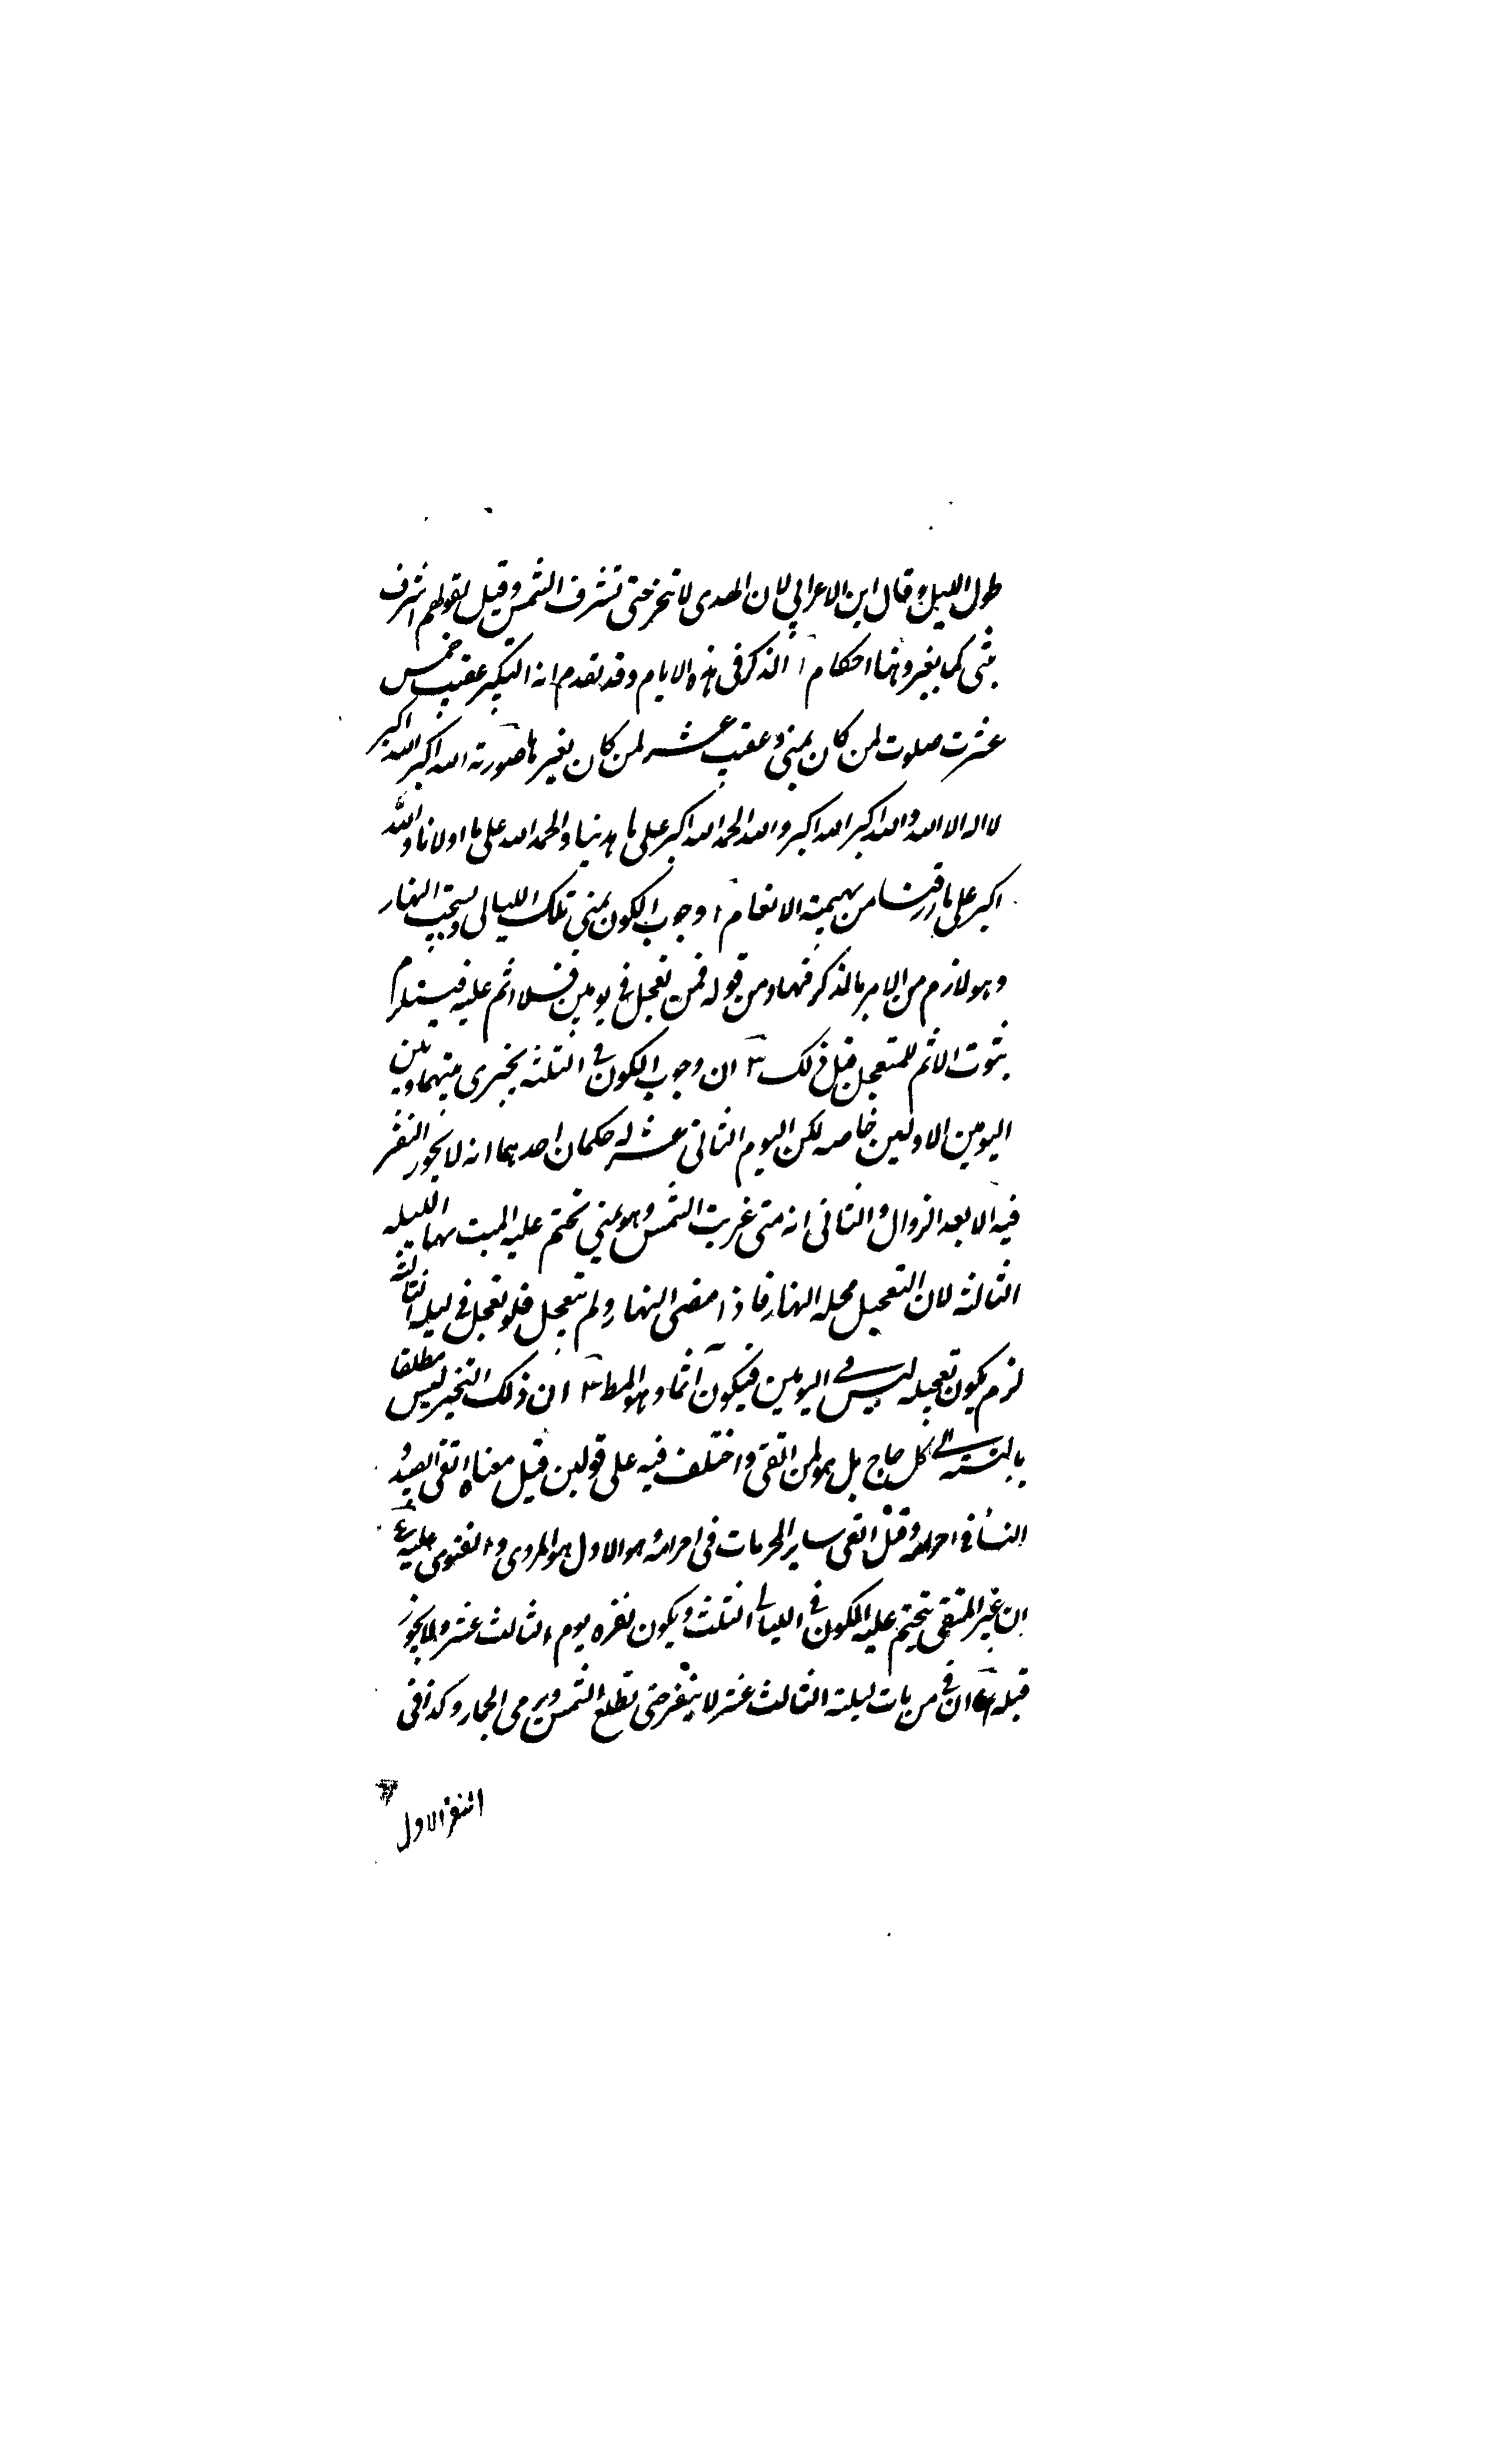 طول الليل وقال ابن الاعرابي لان الهدى لا تنحر حتى تشرق الشمس وقيل لقولهم اشرق
كما يغير وهنا احكام ا الذكر فى هذه الايام وقد تقدم انه التكبير عقيب خمس
عشرت صلوت لمن كان بمنى وعقيب عشر لمن كان بغيرها صورته الله اكبر الله اكبر
لا اله الا الله والله اكبر الله اكبر ولله الحمد الله اكبر على ما هدينا والحمد لله على ما اولانا والله
اكبر على ما رزقنا من بهيمة الانعام وجوب الكون بمنى تلك الليالى ويستحب النهار
وهو لازم من الامر بالذكر فيها ومن قوله فمن تعجل فى يومين فلا اثم عليه فيستلزم
ثبوت الاثم للمتعجل قبل ذلك ٣ ان وجوب الكون فى الثلثه تخيرى بينها وبين
اليومين الاولين خاصه لكن اليوم الثانى عشر له حكمان احدهما انه لا يجوز النفر
فيه الا بعد الزوال والثانى انه متى غربت الشمس وهو بمنى تحتم عليه المبيت بها الليله
الثالثه لان التعجيل محله النهار فاذا مضى النهار ولم يتعجل فلو تعجل فى ليله الثالثه
لزم يكون تعجيله ليس فى اليومين فيكون آثما وهو المط ان ذلك التخيير ليس مطلقا
بالنسبة الى كل حاج بل هو لمن اتقى واختلف فيه على قولين فقيل معناه اتقى الصيد و
النساء فى احرامه وقيل اتقى ساير المحرمات فى احرامه والاول هو المروى والفتوى عليه
ان غير المتقى يتحتم عليه الكون فى الليالى الثلث ويكون نفره يوم الثالث عشر ولا يجوز
قبله ان من بات ليلة الثالث عشر لا ينفر حتى تطلع الشمس ويرمى الجمار وكذا فى
النفر الاول